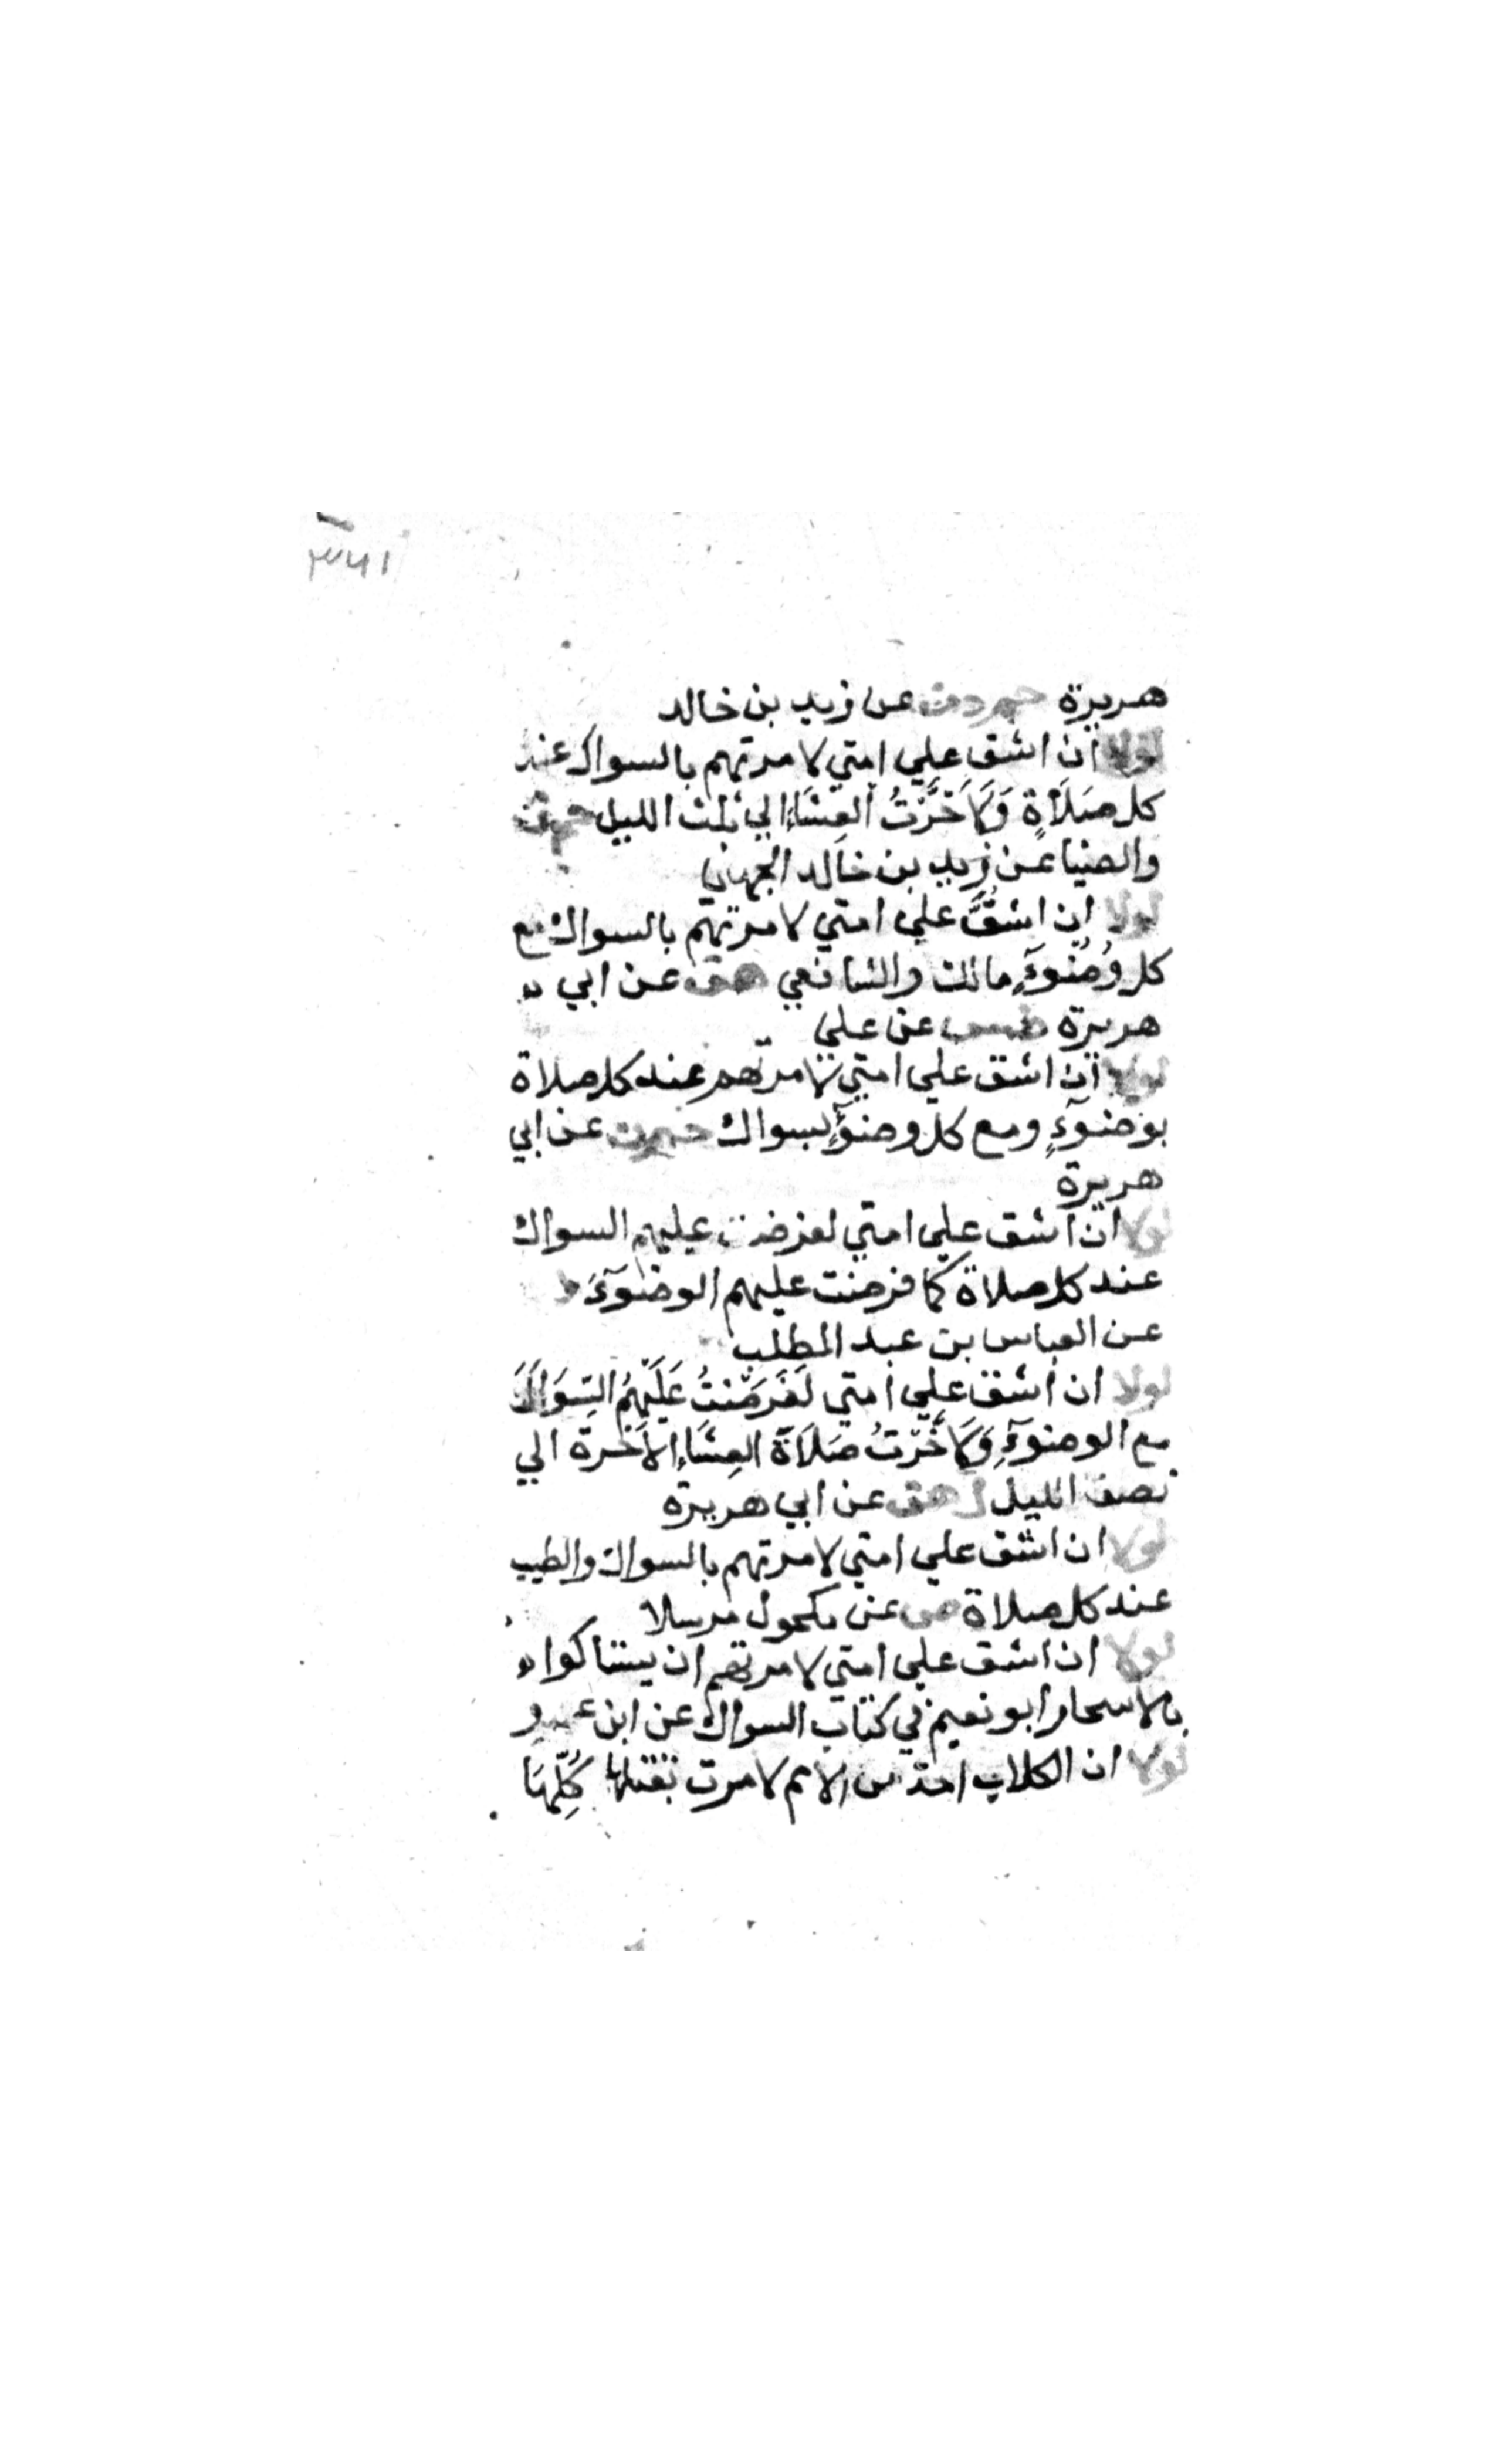 ٣٦١
هريرة حم د ت عن زيد بن خالد
لولا ان اشق علي امتي لامرتهم بالسواك عند
كل صَلَاةٍ وَلَأَخَّرْتُ العِشَاءِ الي ثلث الليل حم ت
والضيا عن زيد بن خالد الجهني
لولا ان اشُقَّ علي امتي لامرتهم بالسواك مع
كل وُضُوٓءٍ مالك والشافعي هق عن ابي
هريرة طس عن علي
لولا ان اشق علي امتي لامرتهم عند كل صلاة
بوضوٓءٍ ومع كل وضوٓءٍ بسواك حم ن عن ابي
هريرة
لولا ان اشق علي امتي لفرضت عليهم السواك
عند كل صلاة كما فرضت عليهم الوضوٓءَ ك
عن العباس بن عبد المطلب
لولا ان اشق علي امتي لَفَرَضْتُ عَلَيْهِمُ السِّوَاكَ
مع الوضوٓءِ وَلَأَخَّرْتُ صَلَاةَ العِشَاءِ الآخرة الي
نصف الليل ك هق عن ابي هريرة
لولا ان اشق علي امتي لامرتهم بالسواك والطيب
عند كل صلاة ص عن مكحول مرسلا
لولا ان اشق علي امتي لامرتهم ان يستاكوا
بالاسحار ابو نعيم في كتاب السواك عن ابن عمرو
لولا ان الكلاب امة من الامم لامرت بقتلها كُلِّهَا